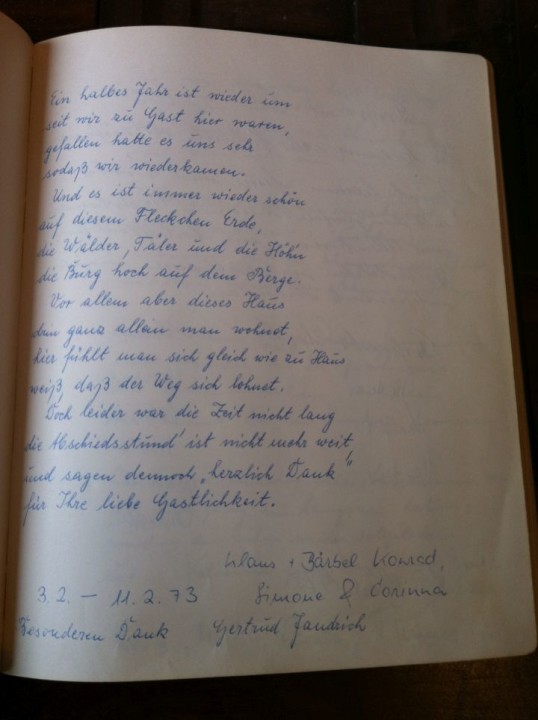 Ein halbes Jahr ist wieder um
seit wir zu Gast hier waren,
gefallen hatte es uns sehr
sodaß wir wiederkamen.
Und es ist immer wieder schön
auf diesem Fleckchen Erde,
die Wälder, Täler und die Höh'n
die Burg hoch auf dem Berge.
Vor allem aber dieses Haus
drin ganz allein man wohnet,
hier fühlt man sich gleich wie zu Haus
weiß, daß der Weg sich lohnet.
Doch leider war die Zeit nicht lang
die Abschiedsstund' ist nicht mehr weit,
und sagen dennoch „herzlich Dank"
für Ihre liebe Gastlichkeit.
Klaus + Bärbel Konrad,
3.2. — 11.2.73 Simone & Corinna
Besonderen Dank Gertrud Jandrich